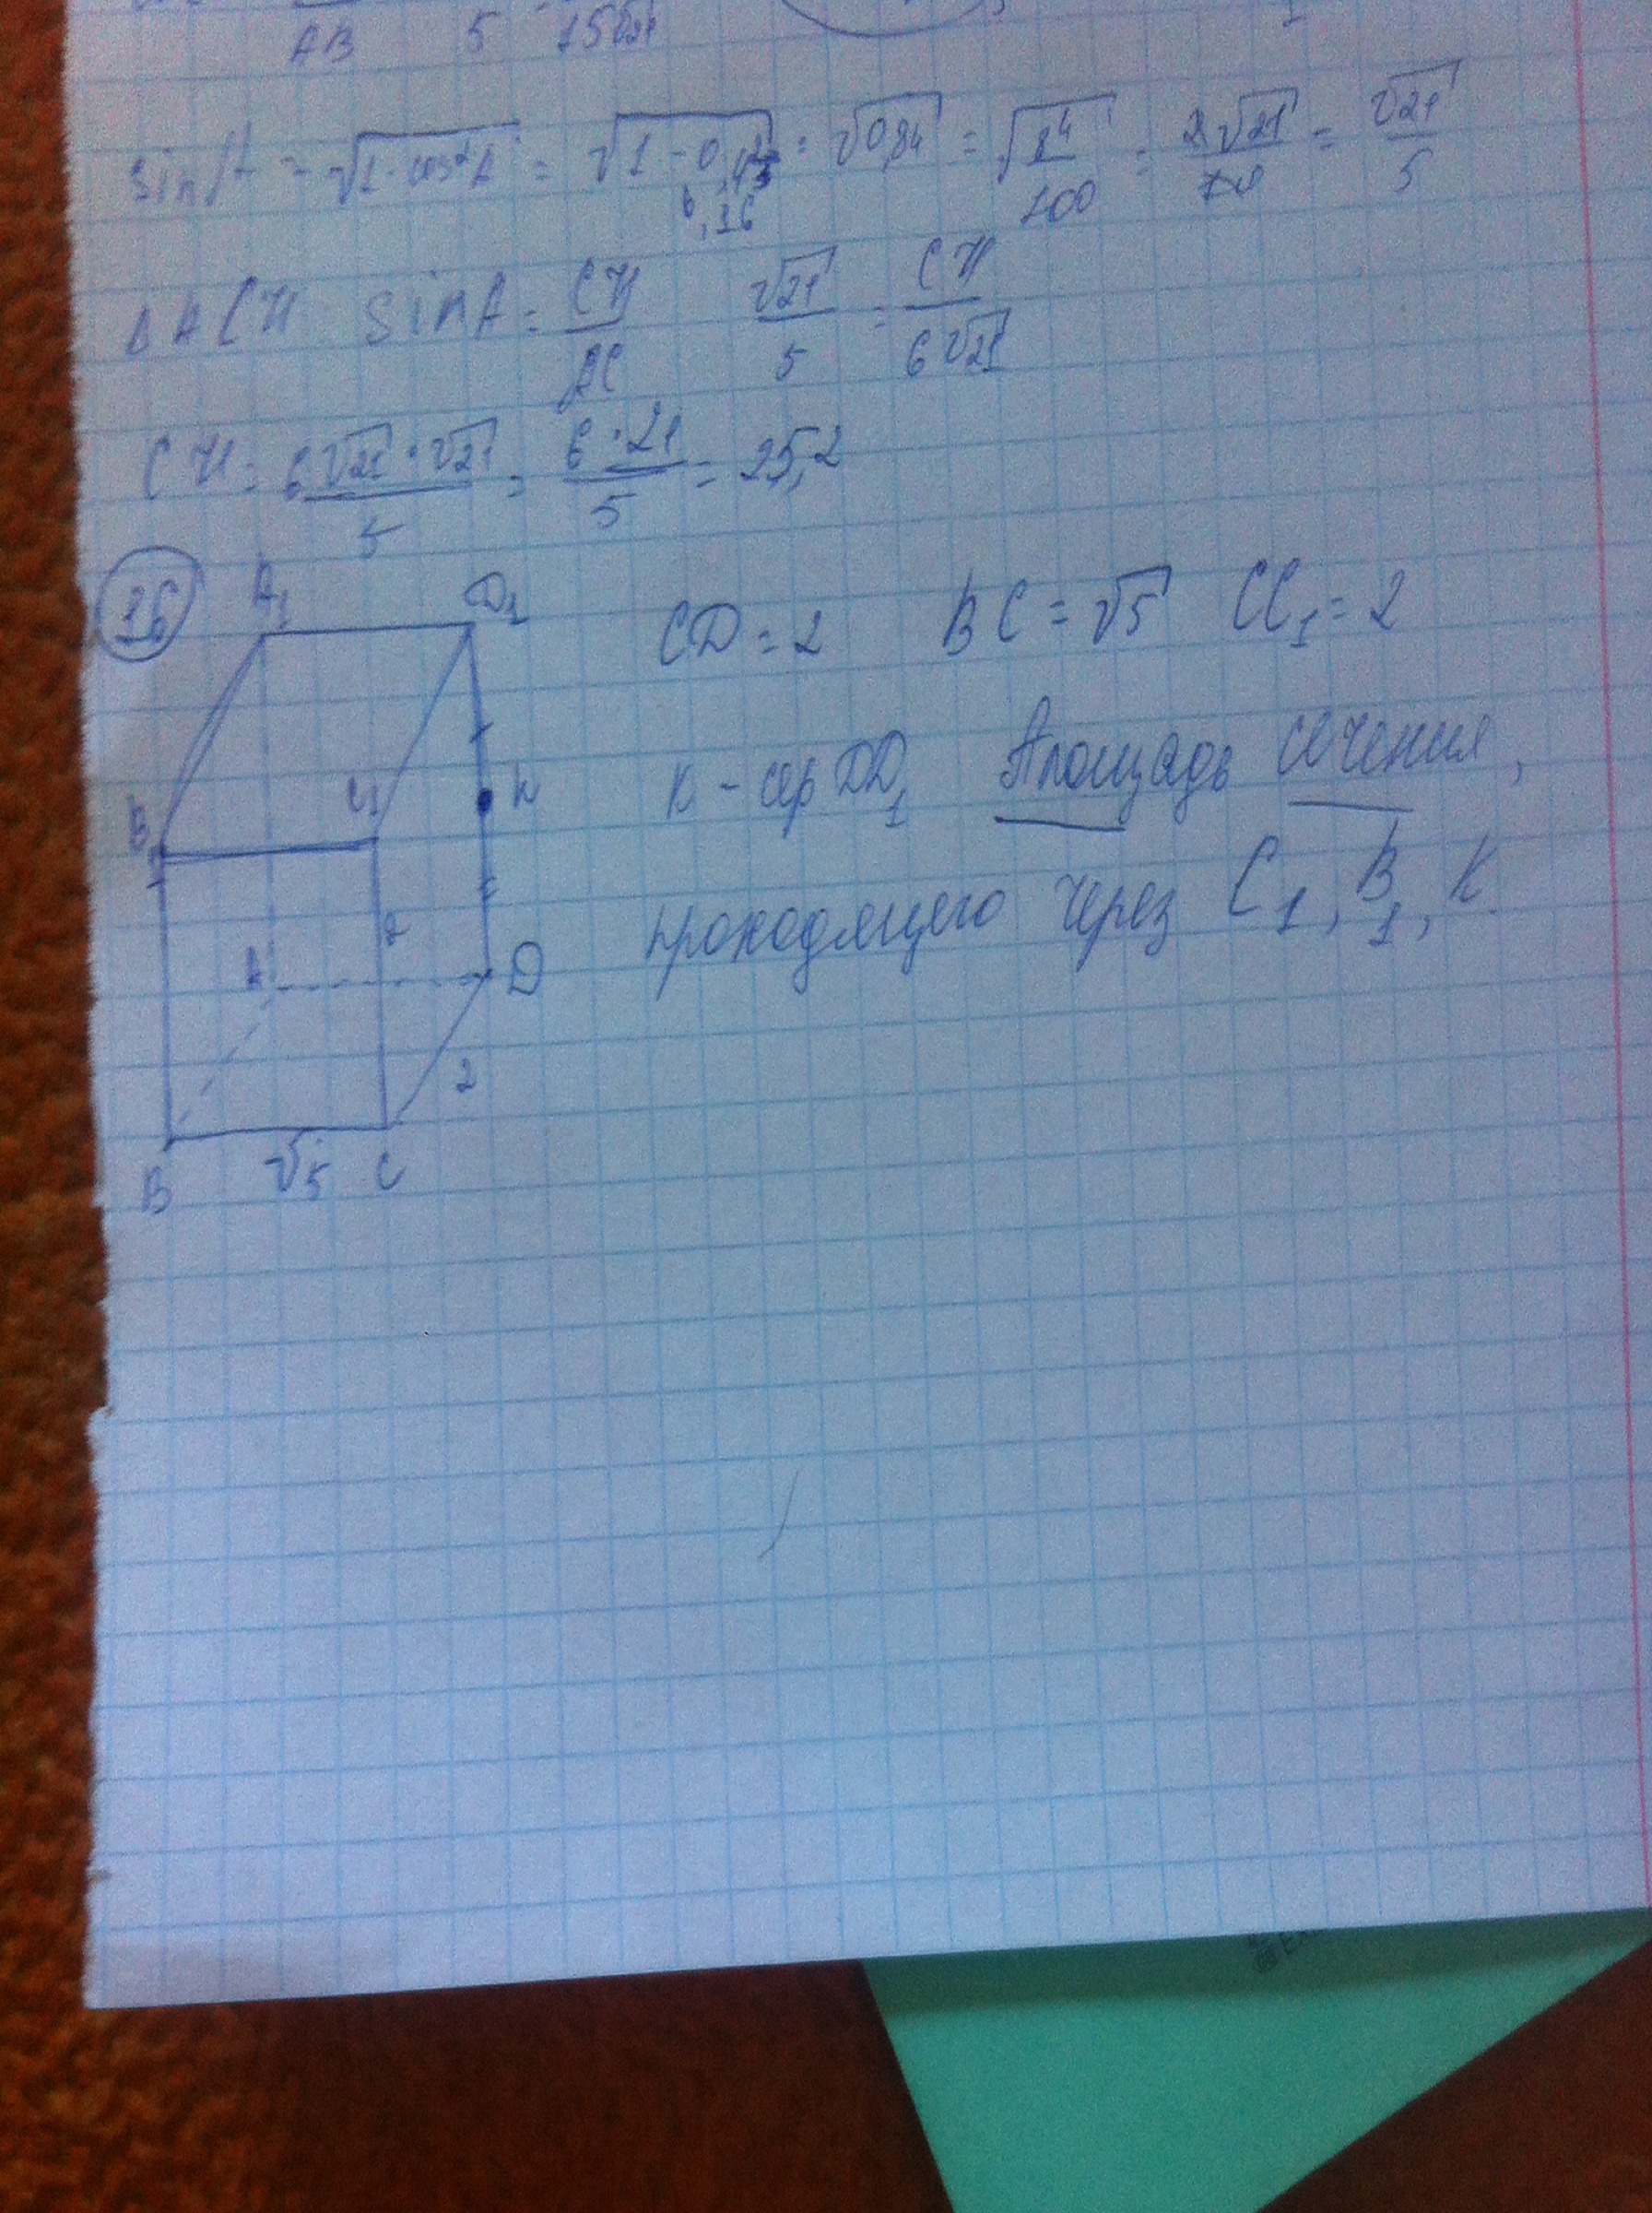 AB 5 15√21
sin A = √1 - cos²A = √1 - 0,4² = √0,84 = √84/100 = 2√21/10 = √21/5
0,16
Δ ACH sin A = CH/AC √21/5 = CH/6√21
CH = 6√21 · √21/5 = 6 · 21/5 = 25,2
16
A₁ D₁
CD = 2 BC = √5 CC₁ = 2
B₁ C₁ K
K - сер DD₁ Площадь сечения,
проходящего через C₁, B₁, K.
2
A D
2
√5
B C